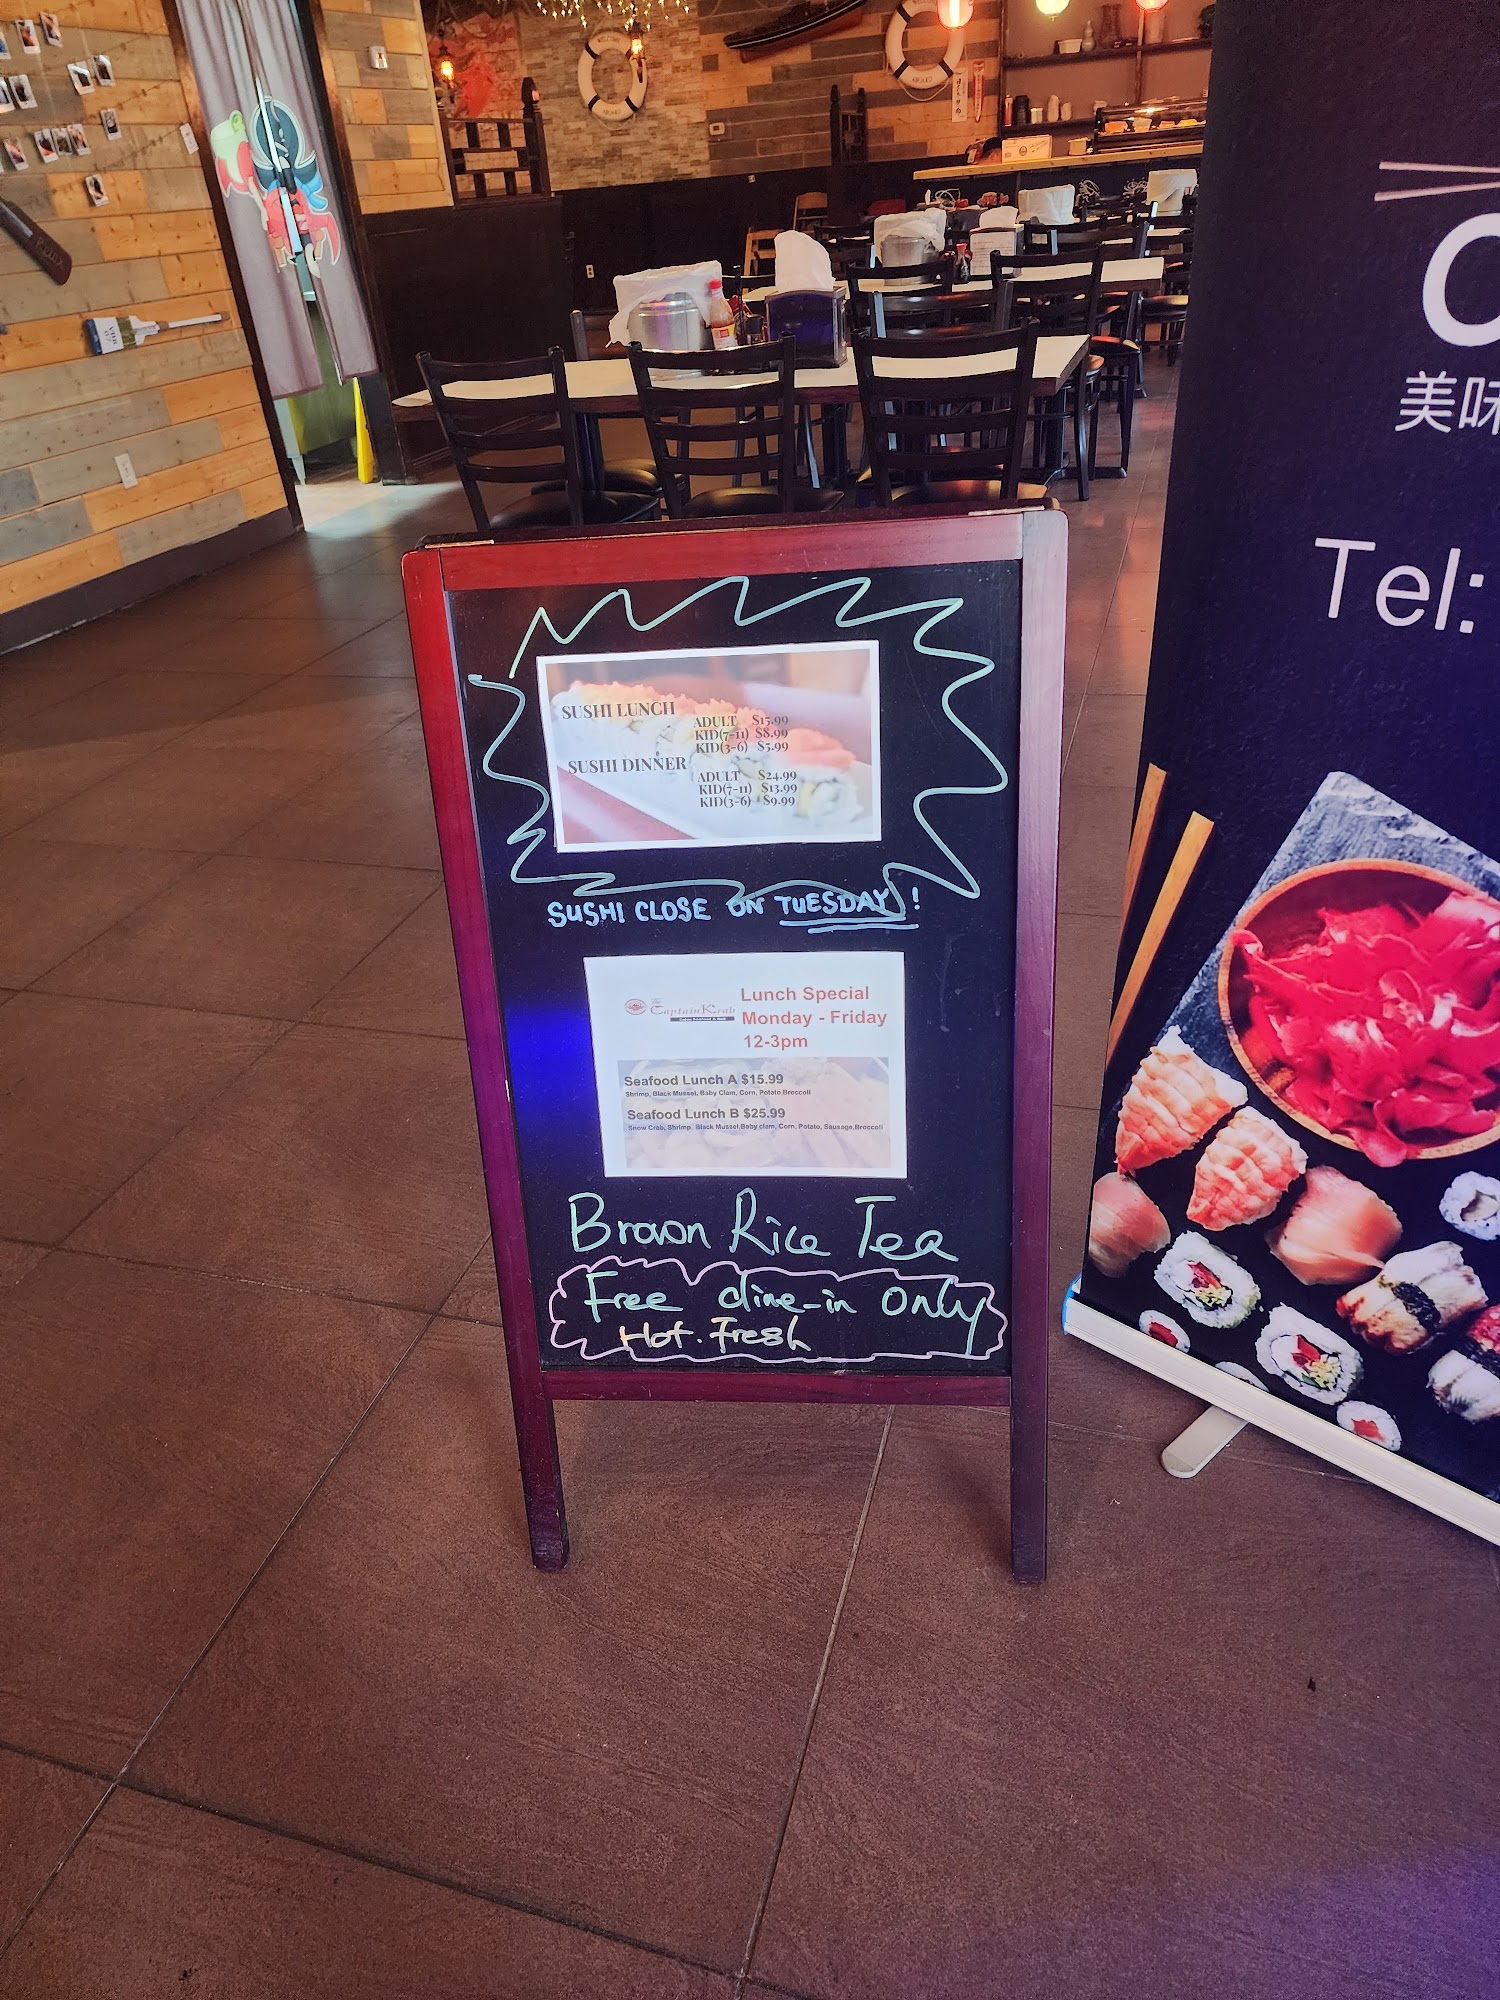 SUSHI LUNCH
ADULT $15.99
KID(7-11) $8.99
KID(3-6) $5.99
SUSHI DINNER
ADULT $24.99
KID(7-11) $13.99
KID(3-6) $9.99
SUSHI CLOSE ON TUESDAY!
The Captain Krab
Lunch Special
Monday - Friday
12-3pm
Seafood Lunch A $15.99
Shrimp, Black Mussel, Baby Clam, Corn, Potato,Broccoli
Seafood Lunch B $25.99
Snow Crab, Shrimp, Black Mussel,Baby clam, Corn, Potato, Sausage,Broccoli
Brown Rice Tea
Free dine-in only
Hot. Fresh
美味
Tel: